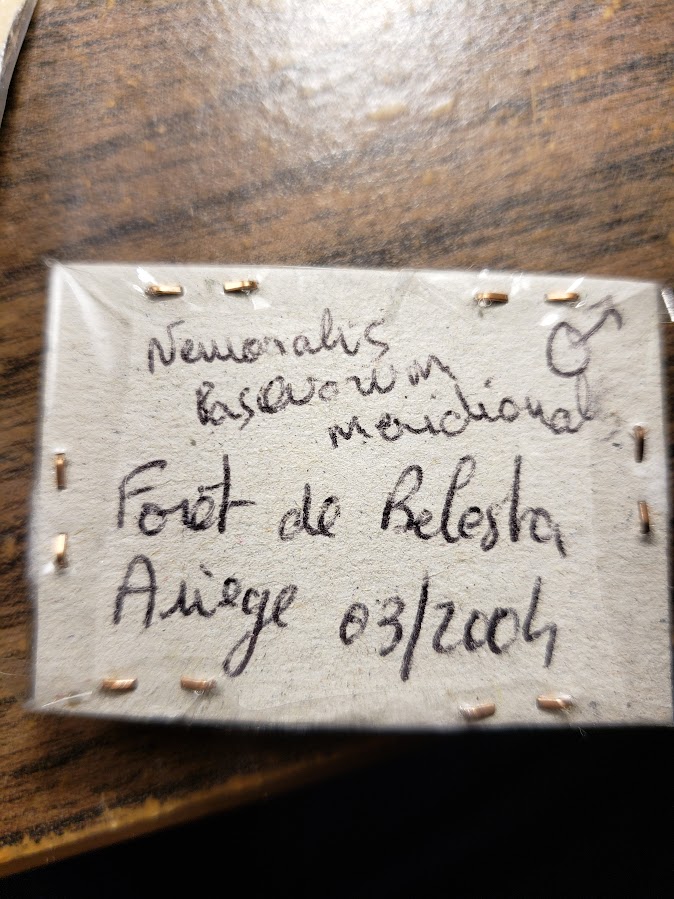 Nemoralis ♂
Basavorum
meridional
Forêt de Belesta
Ariege 03/2004